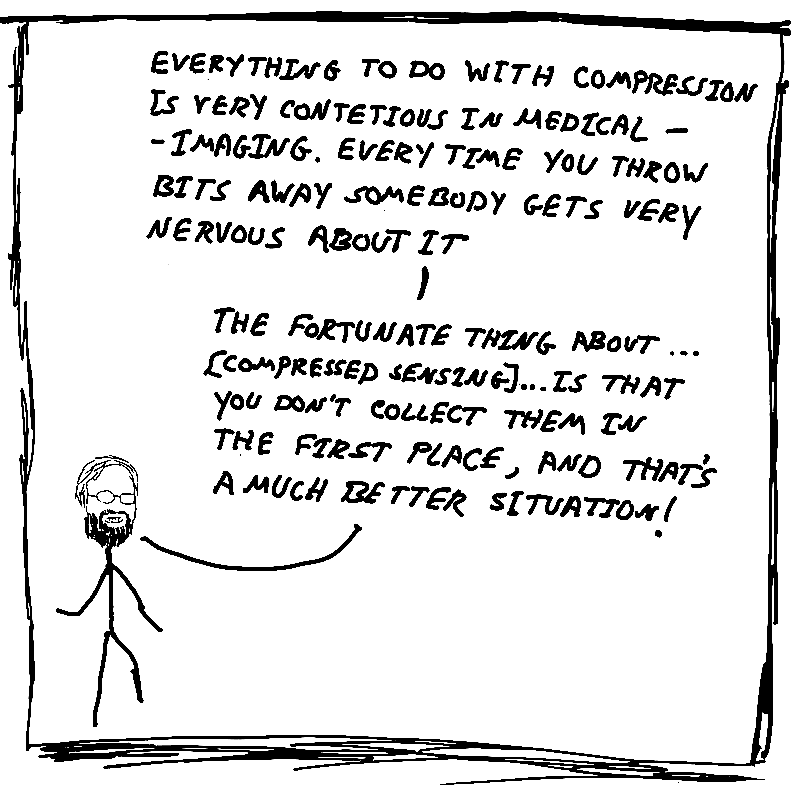 EVERYTHING TO DO WITH COMPRESSION
IS VERY CONTETIOUS IN MEDICAL -
-IMAGING. EVERY TIME YOU THROW
BITS AWAY SOMEBODY GETS VERY
NERVOUS ABOUT IT
THE FORTUNATE THING ABOUT ...
[COMPRESSED SENSING]... IS THAT
YOU DON'T COLLECT THEM IN
THE FIRST PLACE, AND THAT'S
A MUCH BETTER SITUATION!